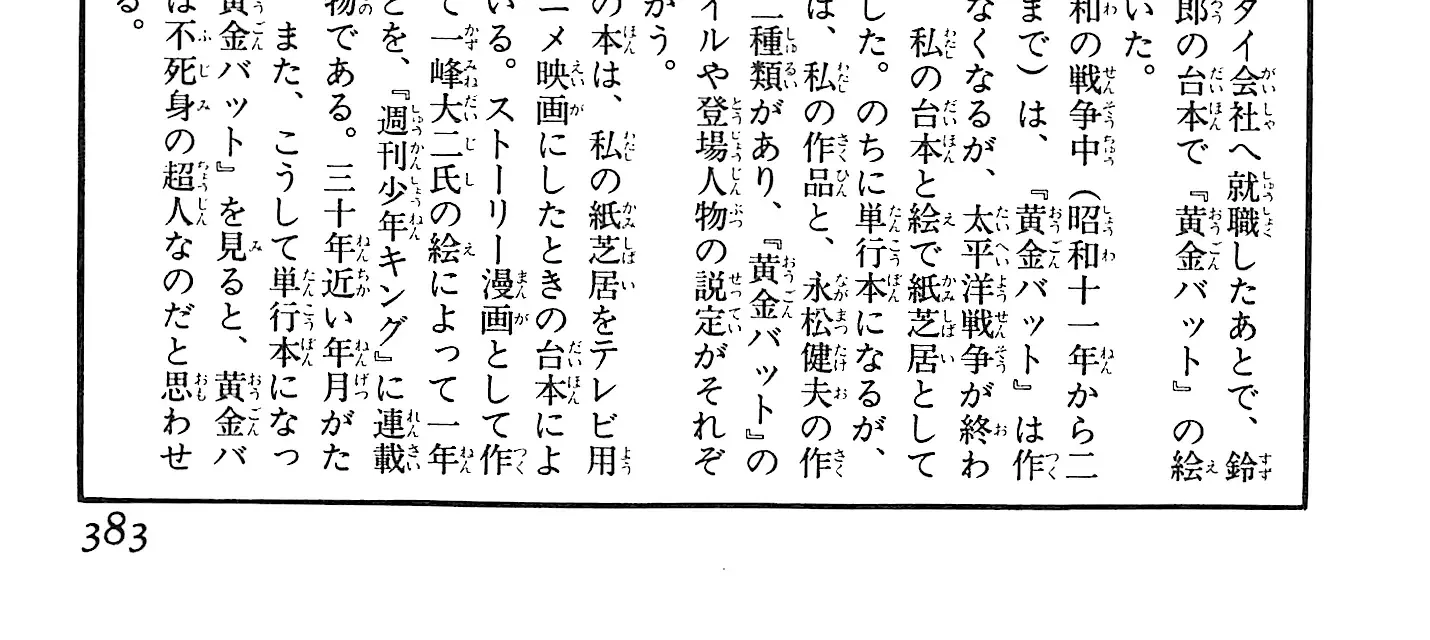 タイ会社へ就職したあとで、鈴
郎の台本で『黄金バット』の絵
いた。
和の戦争中（昭和十一年から二
まで）は、『黄金バット』は作
なくなるが、太平洋戦争が終わ
私の台本と絵で紙芝居として
した。のちに単行本になるが、
は、私の作品と、永松健夫の作
二種類があり、『黄金バット』の
イルや登場人物の設定がそれぞ
がう。
の本は、私の紙芝居をテレビ用
ニメ映画にしたときの台本によ
いる。ストーリー漫画として作
て一峰大二氏の絵によって一年
とを、『週刊少年キング』に連載
物である。三十年近い年月がた
また、こうして単行本になっ
黄金バット』を見ると、黄金バ
は不死身の超人なのだと思わせ
る。
383